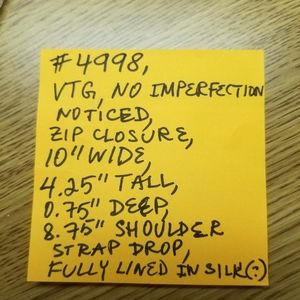 #4998,
VTG, NO IMPERFECTION
NOTICED,
ZIP CLOSURE,
10" WIDE,
4.25" TALL,
0.75" DEEP,
8.75" SHOULDER
STRAP DROP,
FULLY LINED IN SILK(?)